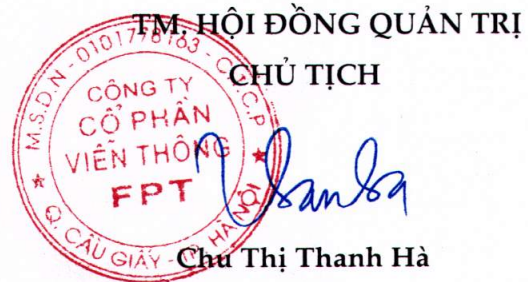 TM. HỘI ĐỒNG QUẢN TRỊ
CHỦ TỊCH
M.S.D.N - 0101778163 - C.T.C.P
CÔNG TY
CỔ PHẦN
VIỄN THÔNG
FPT
Q. CẦU GIẤY - TP. HÀ NỘI
Chu Thị Thanh Hà